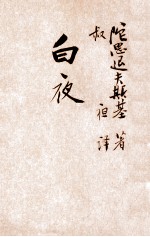 陀思退夫斯基 著
叔夜 譯
白夜